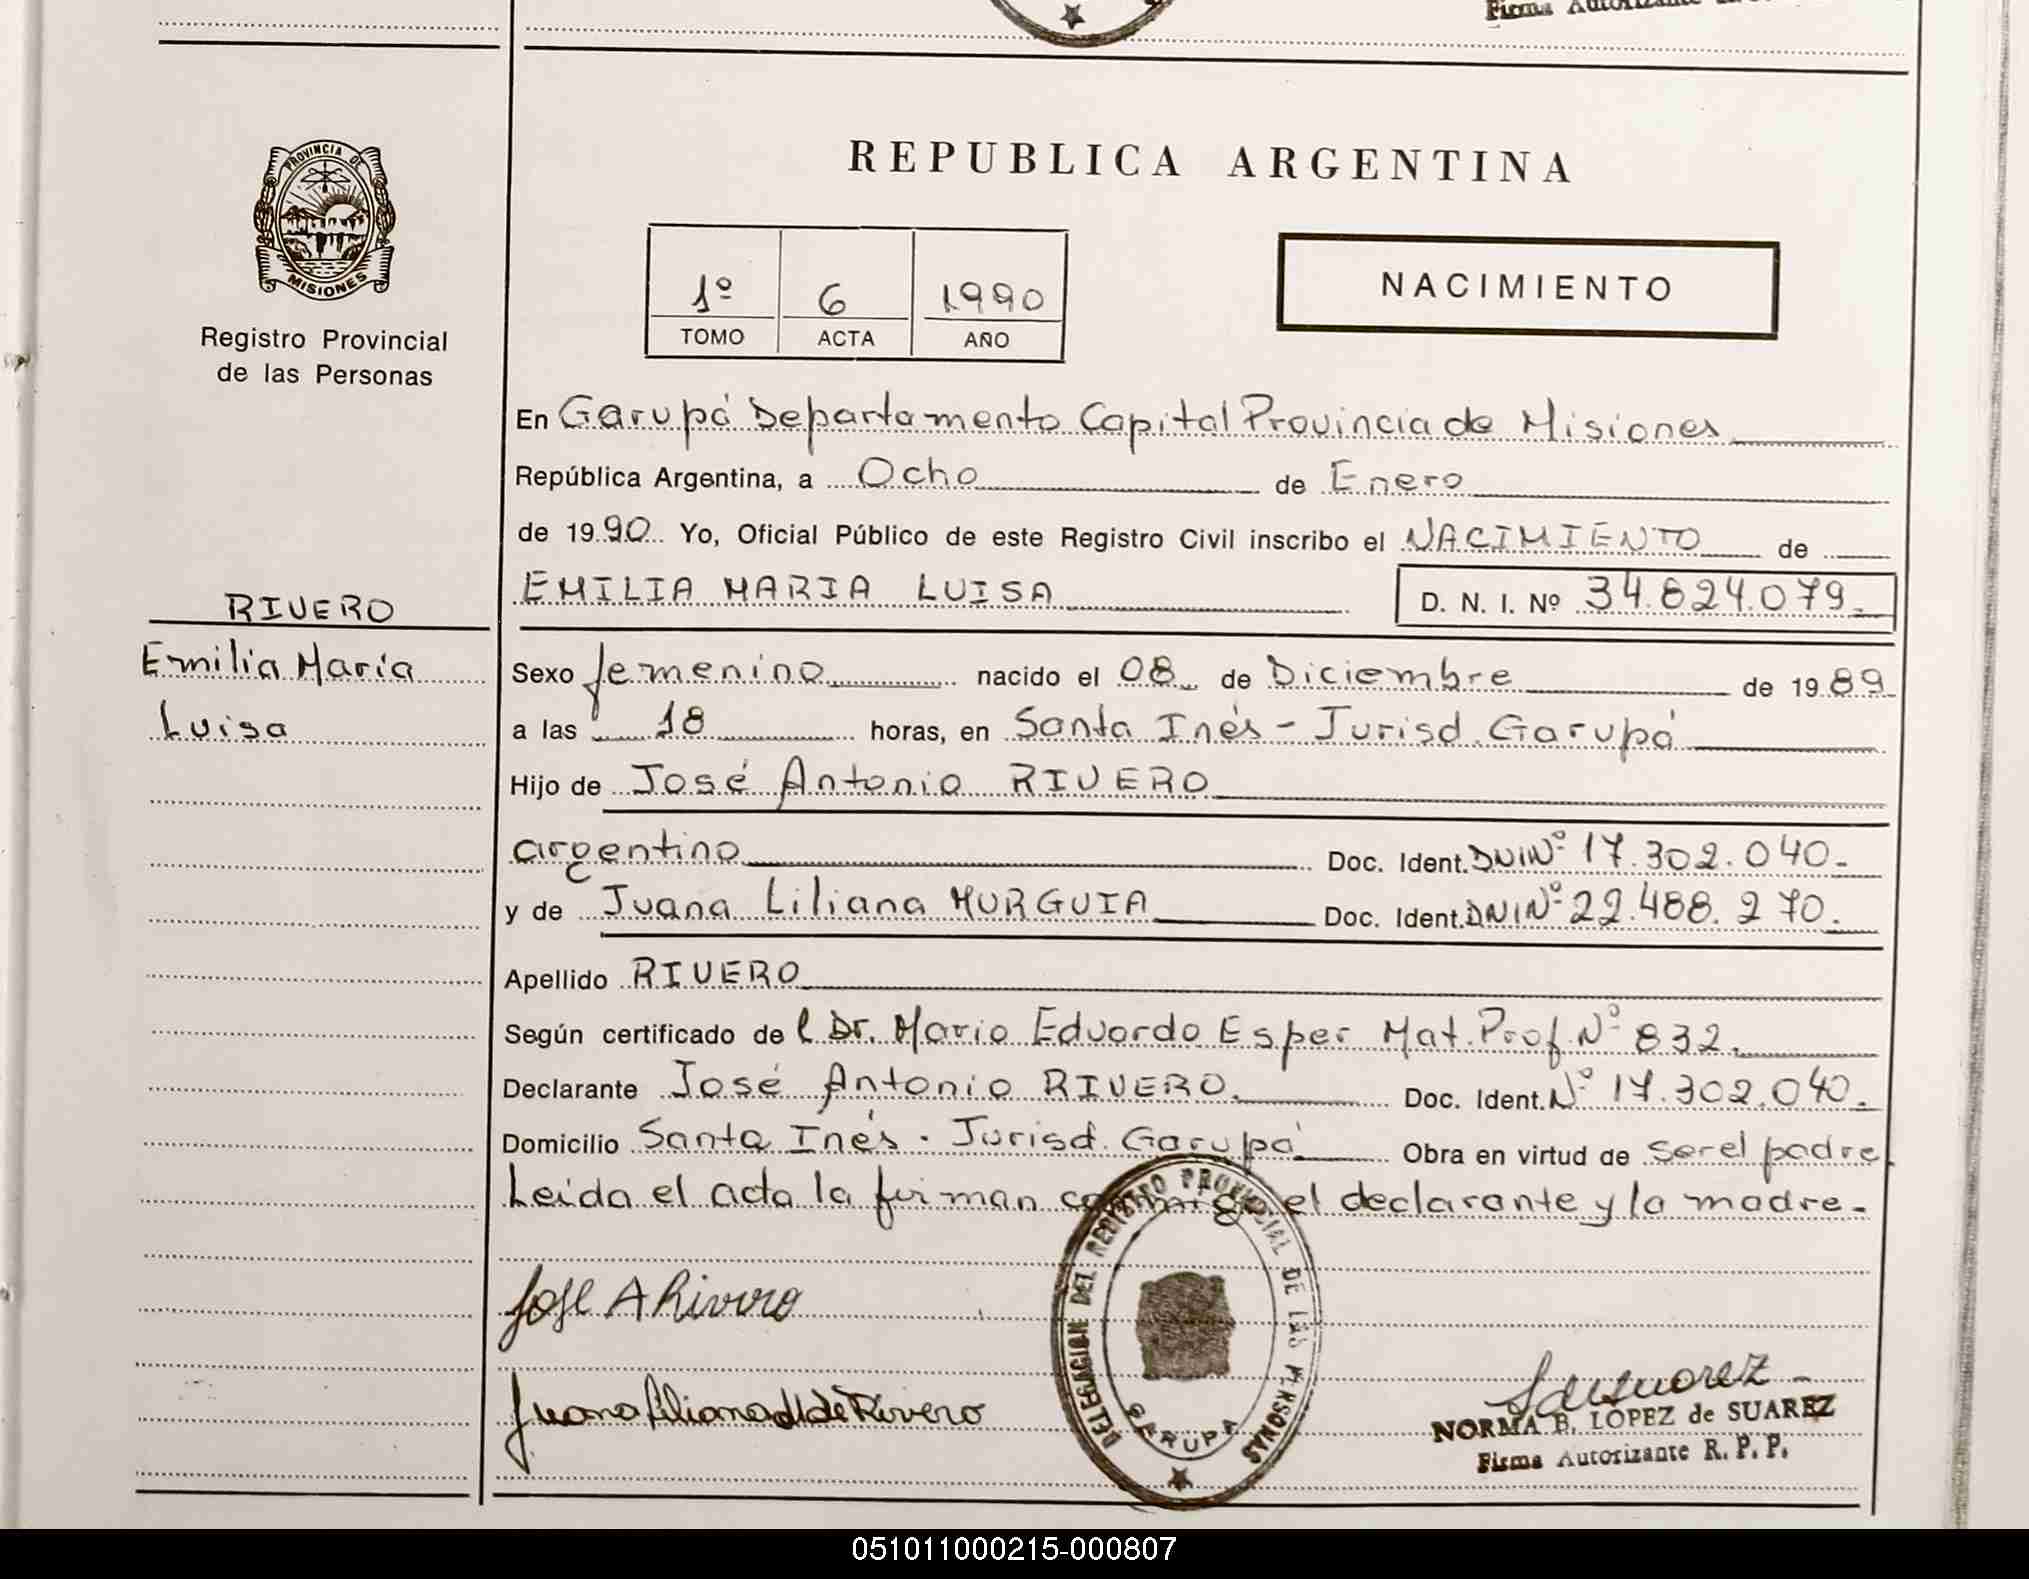 Firma Autorizante
PROVINCIA DE
MISIONES
Registro Provincial
de las Personas
RIVERO
Emilia María
Luisa
REPUBLICA ARGENTINA
1º 6 1990
TOMO ACTA AÑO
NACIMIENTO
En Garupá Departamento Capital Provincia de Misiones
República Argentina, a Ocho de Enero
de 1990 Yo, Oficial Público de este Registro Civil inscribo el NACIMIENTO de
EMILIA MARIA LUISA D. N. I. Nº 34.824.079.
Sexo femenino nacido el 08 de Diciembre de 1989
a las 18 horas, en Santa Inés - Jurisd. Garupá
Hijo de José Antonio RIVERO
argentino Doc. Ident. DNI Nº 17.302.040.-
y de Juana Liliana MURGUIA Doc. Ident. DNI Nº 22.488.270.
Apellido RIVERO
Según certificado del Dr. Mario Eduardo Esper Mat. Prof. Nº 832.
Declarante José Antonio RIVERO. Doc. Ident. Nº 17.302.040.
Domicilio Santa Inés - Jurisd. Garupá Obra en virtud de ser el padre
Leída el acta la firman conmigo el declarante y la madre.-
José A Rivero
Juana Liliana M de Rivero
DELEGACION DEL REGISTRO PROVINCIAL DE LAS PERSONAS
GARUPA
NORMA B. LOPEZ de SUAREZ
Firma Autorizante R. P. P.
051011000215-000807